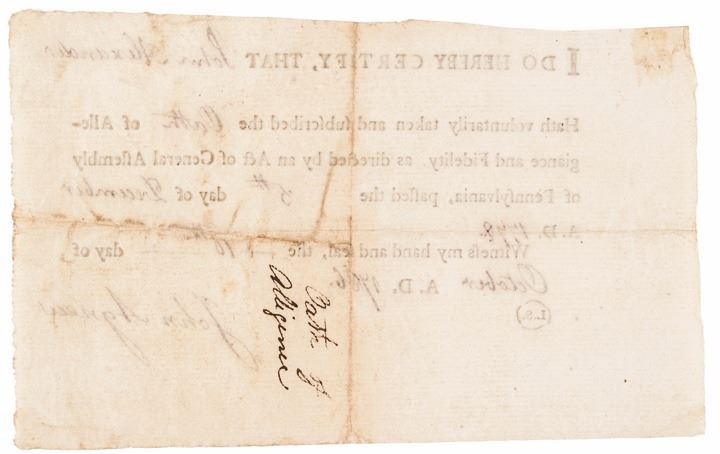 I DO HEREBY CERTIFY, THAT John Alexander
Hath voluntarily taken and ſubſcribed the Oath of Alle-
giance and Fidelity, as directed by an Act of General Aſſembly
of Pennſylvania, paſſed the 5th day of December
A. D. 1778.
Witneſs my hand and ſeal, the 10th day of
October A. D. 1786.
(L.S.)
John Agnew
Oath of
Alligence